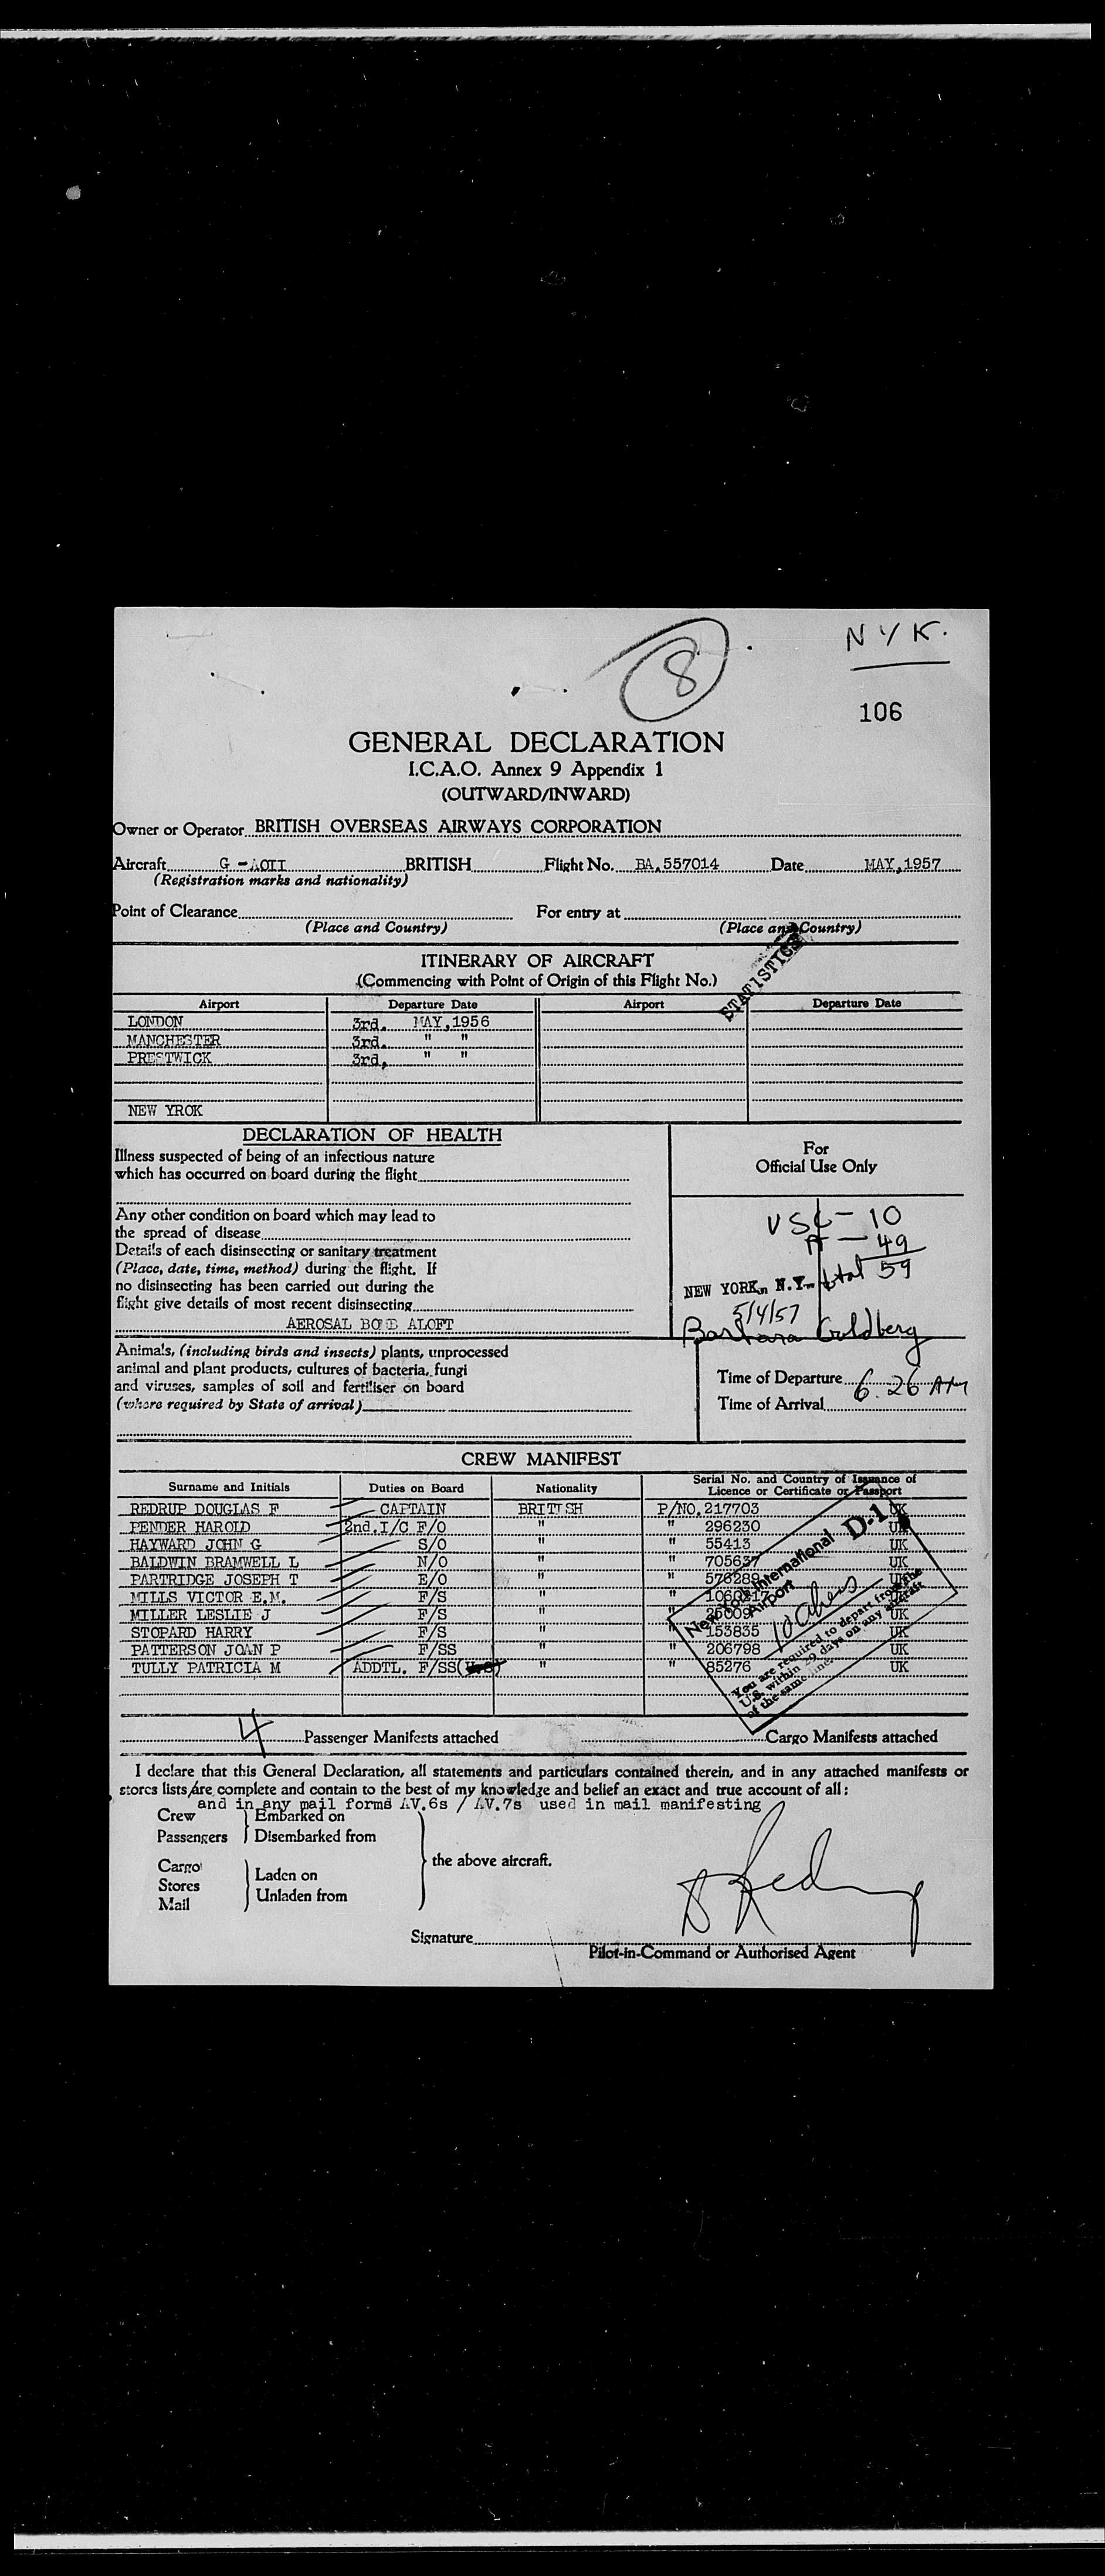 8
NYK.
106
GENERAL DECLARATION
I.C.A.O. Annex 9 Appendix 1
(OUTWARD/INWARD)
Owner or Operator BRITISH OVERSEAS AIRWAYS CORPORATION
Aircraft G - AOII BRITISH Flight No. BA.557014 Date MAY,1957
(Registration marks and nationality)
Point of Clearance For entry at
(Place and Country) (Place and Country)
STATISTICS
ITINERARY OF AIRCRAFT
(Commencing with Point of Origin of this Flight No.)
Airport Departure Date Airport Departure Date
LONDON 3rd. MAY,1956
MANCHESTER 3rd. " "
PRESTWICK 3rd, " "
NEW YROK
DECLARATION OF HEALTH
Illness suspected of being of an infectious nature
which has occurred on board during the flight
Any other condition on board which may lead to
the spread of disease
Details of each disinsecting or sanitary treatment
(Place, date, time, method) during the flight. If
no disinsecting has been carried out during the
flight give details of most recent disinsecting
AEROSAL ALOFT
For
Official Use Only
USC - 10
A - 49
total 59
NEW YORK, N.Y.
5/4/57
Barbara Goldberg
Animals, (including birds and insects) plants, unprocessed
animal and plant products, cultures of bacteria, fungi
and viruses, samples of soil and fertiliser on board
(where required by State of arrival)
Time of Departure 6.26 AM
Time of Arrival
CREW MANIFEST
Surname and Initials Duties on Board Nationality Serial No. and Country of Issuance of
Licence or Certificate or Passport
REDRUP DOUGLAS F CAPTAIN BRITISH P/NO.217703 UK
PENDER HAROLD 2nd.I/C F/O " " 296230 UK
HAYWARD JOHN G S/O " " 55413 UK
BALDWIN BRAMWELL L N/O " " 705637 UK
PARTRIDGE JOSEPH T E/O " " 576289 UK
MILLS VICTOR E.M. F/S " "
MILLER LESLIE J F/S " " UK
STOPARD HARRY F/S " " 153835 UK
PATTERSON JOAN P F/SS " " 206798 UK
TULLY PATRICIA M ADDTL. F/SS " " 85276 UK
New York International
Airport
D-1
You are required to depart from the
U.S. within 29 days on any aircraft
of the same line.
4 Passenger Manifests attached Cargo Manifests attached
I declare that this General Declaration, all statements and particulars contained therein, and in any attached manifests or
stores lists/are complete and contain to the best of my knowledge and belief an exact and true account of all:
and in any mail forms AV.6s / AV.7s used in mail manifesting
Crew Embarked on
Passengers Disembarked from
the above aircraft.
Cargo
Stores Laden on
Mail Unladen from
Signature
Pilot-in-Command or Authorised Agent